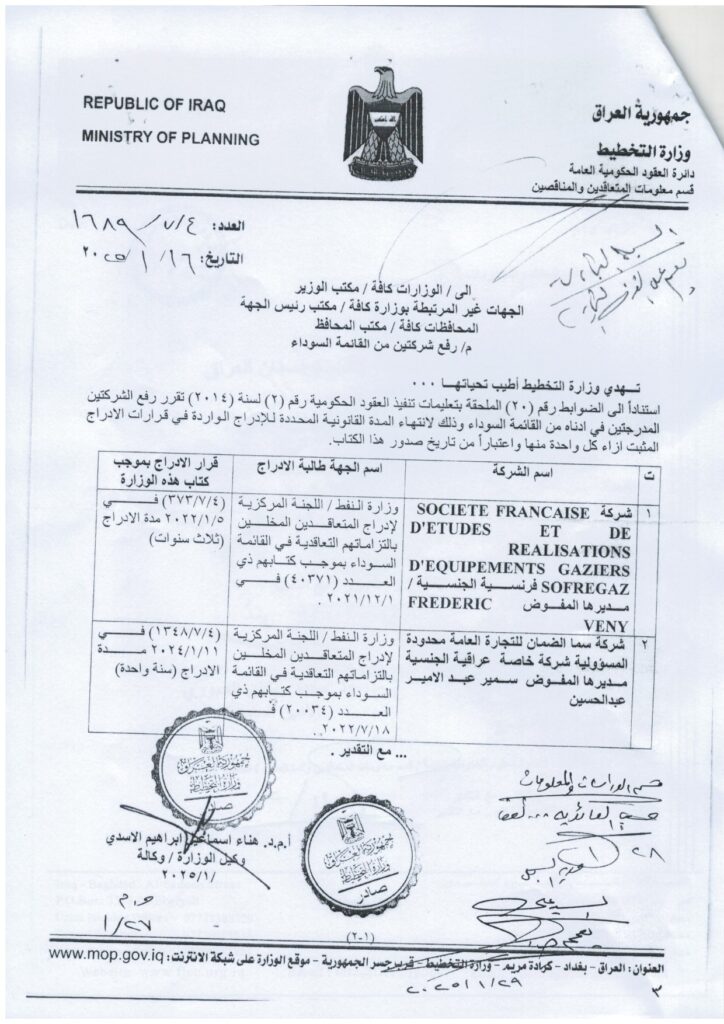 REPUBLIC OF IRAQ
MINISTRY OF PLANNING
جمهورية العراق
وزارة التخطيط
دائرة العقود الحكومية العامة
قسم معلومات المتعاقدين والمناقصين
العدد: ٤/٧/ ١٦٨٩
التاريخ: ١٦/ ١/ ٢٠٢٥
الى / الوزارات كافة / مكتب الوزير
الجهات غير المرتبطة بوزارة كافة / مكتب رئيس الجهة
المحافظات كافة / مكتب المحافظ
م/ رفع شركتين من القائمة السوداء
تهدي وزارة التخطيط أطيب تحياتها ...
استناداً الى الضوابط رقم (٢٠) الملحقة بتعليمات تنفيذ العقود الحكومية رقم (٢) لسنة (٢٠١٤) تقرر رفع الشركتين
المدرجتين في ادناه من القائمة السوداء وذلك لانتهاء المدة القانونية المحددة للإدراج الواردة في قرارات الادراج
المثبت ازاء كل واحدة منها واعتباراً من تاريخ صدور هذا الكتاب.
ت
اسم الشركة
اسم الجهة طالبة الادراج
قرار الادراج بموجب
كتاب هذه الوزارة
١
شركة SOCIETE FRANCAISE
D'ETUDES ET DE
REALISATIONS
D'EQUIPEMENTS GAZIERS
SOFREGAZ فرنسية الجنسية /
مديرها المفوض FREDERIC
VENY
وزارة النفط / اللجنة المركزية
لإدراج المتعاقدين المخلين
بالتزاماتهم التعاقدية في القائمة
السوداء بموجب كتابهم ذي
العدد (٤٠٣٧١) في
٢٠٢١/١٢/١ .
(٣٧٣/٧/٤) في
٢٠٢٢/١/٥ مدة الادراج
(ثلاث سنوات)
٢
شركة سما الضمان للتجارة العامة محدودة
المسؤولية شركة خاصة عراقية الجنسية
مديرها المفوض سمير عبد الامير
عبدالحسين
وزارة النفط / اللجنة المركزية
لإدراج المتعاقدين المخلين
بالتزاماتهم التعاقدية في القائمة
السوداء بموجب كتابهم ذي
العدد (٢٠٠٣٤) في
٢٠٢٢/٧/١٨ .
(١٣٤٨/٧/٤) في
٢٠٢٤/١/١١ مدة
الادراج (سنة واحدة)
... مع التقدير .
جمهورية العراق
وزارة التخطيط
صادر
أ.م.د. هناء اسماعيل ابراهيم الاسدي
وكيل الوزارة / وكالة
٢٠٢٥/١/
جمهورية العراق
وزارة التخطيط
صادر
قسم الدراسات والمعلومات
٢٨
١/٢٧
(٢-١)
العنوان: العراق - بغداد - كرادة مريم - وزارة التخطيط - قرب جسر الجمهورية - موقع الوزارة على شبكة الانترنت: www.mop.gov.iq
٢٠٢٥/١/٢٩
٣